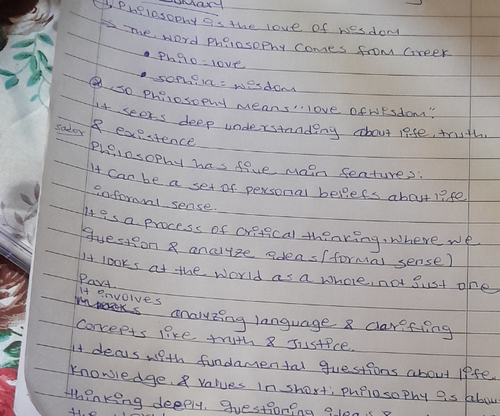 1, Philosophy is the love of wisdom
→ The word Philosophy comes from Greek
• Philo = love
• Sophila = wisdom
So Philosophy means "love of wisdom".
It seeks deep understanding about life, truth,
& existence
Philosophy has five main features:
It can be a set of personal beliefs about life
informal sense.
It is a process of critical thinking, where we
question & analyze ideas (formal sense)
It looks at the world as a whole, not just one
Part.
It involves
analyzing language & clarifing
Concepts like truth & Justice.
It deals with fundamental questions about life,
Knowledge, & values In short: Philosophy is about
thinking deeply, questioning ideas &